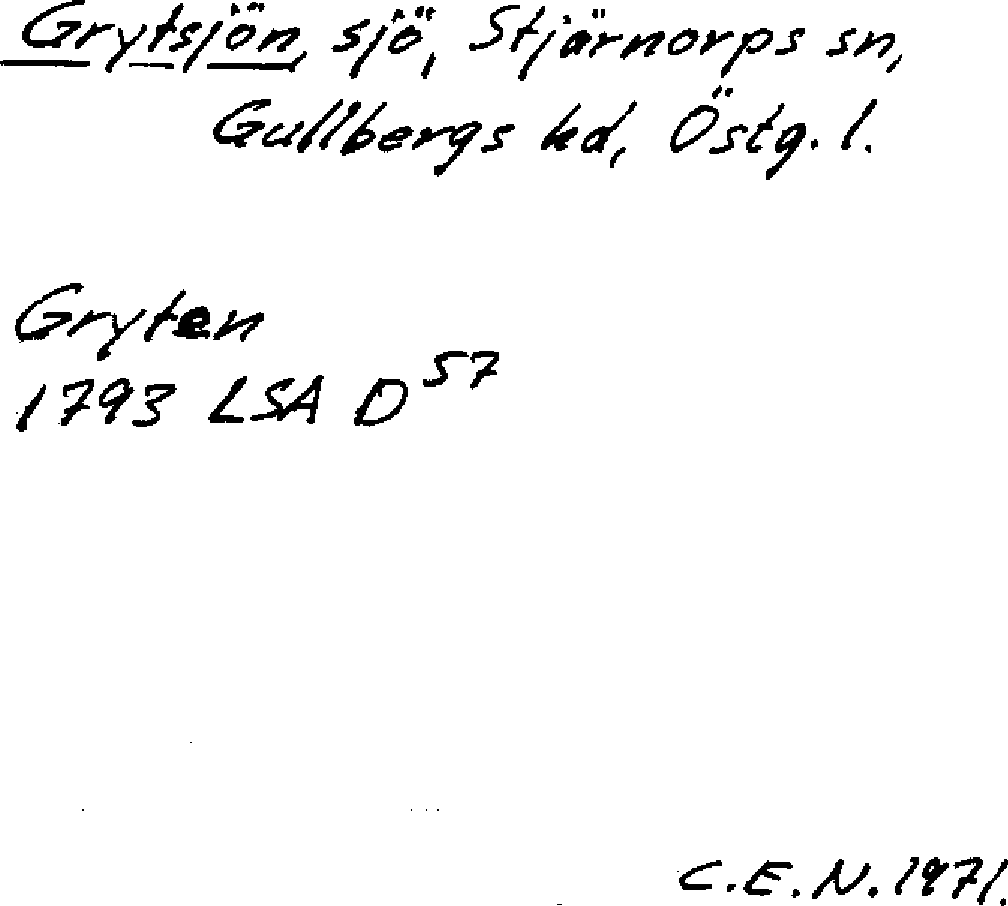 Grytsjön, sjö, Stjärnorps sn,
Gullbergs hd, Östg. l.
Gryten
1793 LSA D57
C.E.N. 1971.